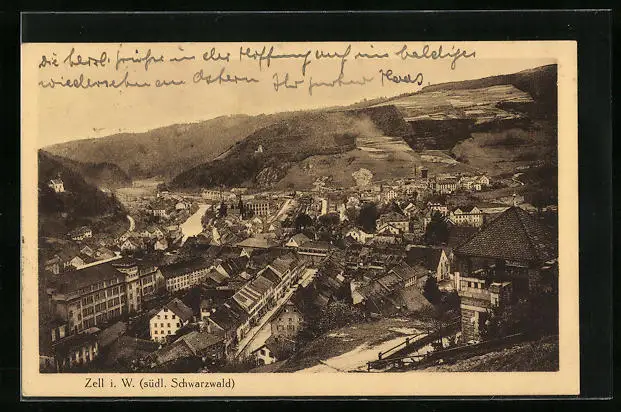 Die herzl. Grüße in der Hoffnung auf ein baldiges
wiedersehn an Ostern Ihr
Zell i. W. (südl. Schwarzwald)